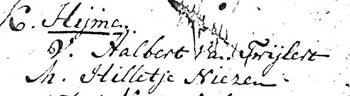 K. Hijme,
V. Halbert van Trijlert
M. Hilletje Niezen